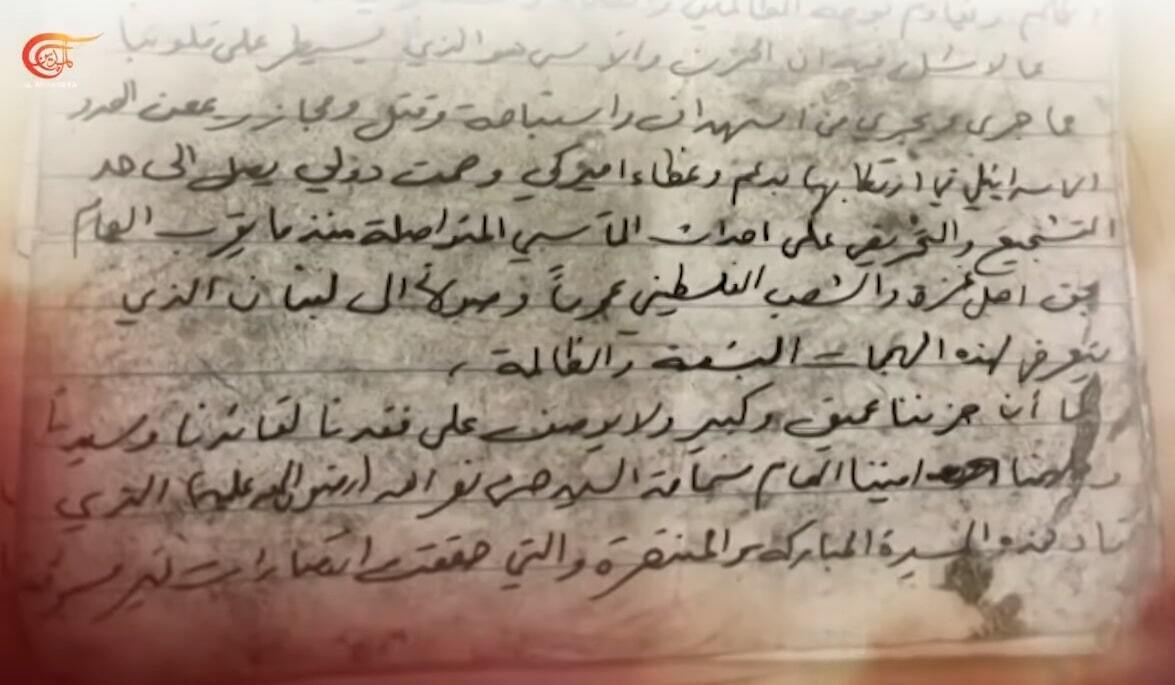 الظالم ونقاوم بوجه الظالمين
مما لا شك فيه ان الحزن والأسى هو الذي يسيطر على قلوبنا
ما جرى ويجري من استهداف واستباحة وقتل ومجازر يمعن العدو
الاسرائيلي في ارتكابها بدعم وغطاء اميركي وصمت دولي يصل الى حد
التشجيع والتحريض على احداث المآسي المتواصلة منذ ما يقرب العام
بحق اهل غزة والشعب الفلسطيني عموماً وصولاً الى لبنان الذي
يتعرض لهذه الهجمات البشعة والظالمة ،
كما أن حزننا عميق وكبير ولا يوصف على فقدنا لقائدنا وسيدنا
اميننا العام سماحة السيد حسن نصر الله (رضوان الله عليه) الذي
قاد هذه المسيرة المباركة والمنتصرة والتي حققت انتصارات غير مسبوقة